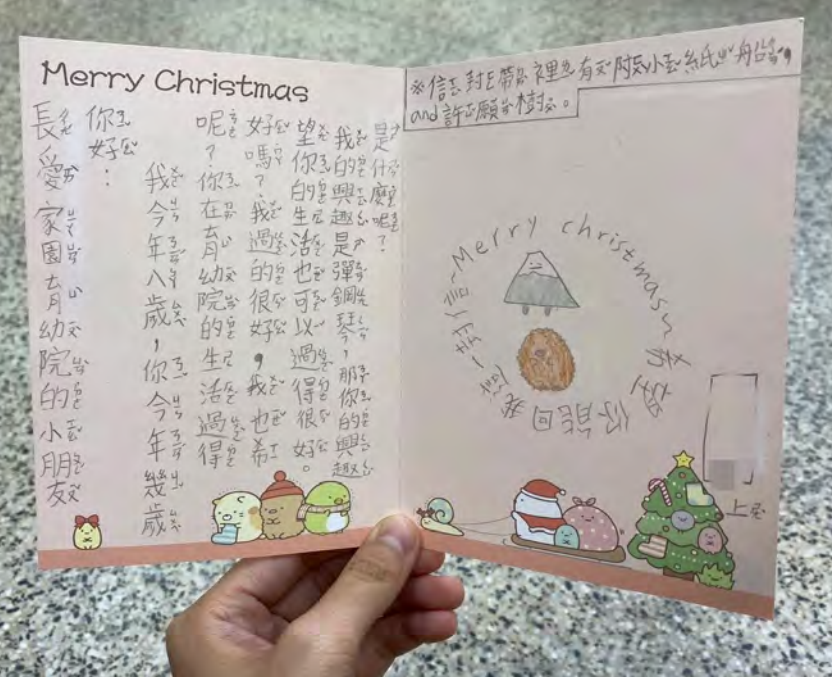 Merry Christmas
長愛家園育幼院的小朋友
你好：
我今年八歲，你今年幾歲
呢？你在育幼院的生活過得
好嗎？我過的很好，我也希
望你的生活也可以過得很好。
我的興趣是彈鋼琴，那你的興趣
是什麼呢？
※信封帶裡有附小紙船，
and 許願樹。
~Merry christmas~希望你能回我這一封信
上